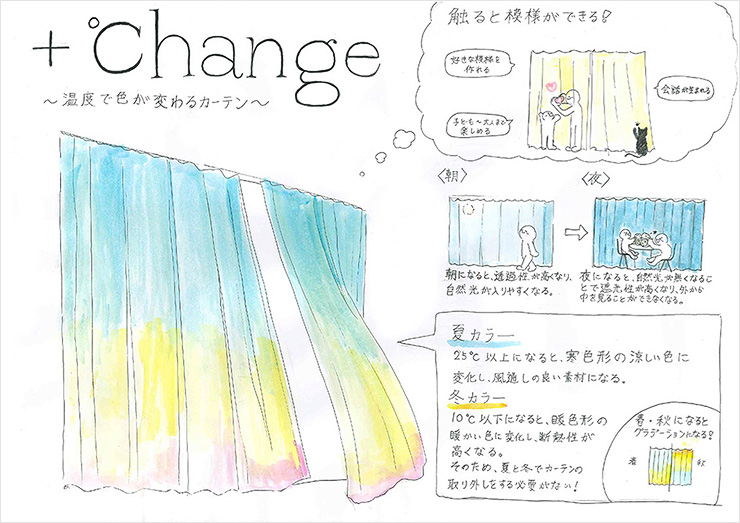 +℃hange
～温度で色が変わるカーテン～
触ると模様ができる！
好きな模様を
作れる
子ども〜大人まで
楽しめる
会話が生まれる
〈朝〉
朝になると、透過性が高くなり、
自然光が入りやすくなる。
〈夜〉
夜になると、自然光が無くなるこ
とで遮光性が高くなり、外から
中を見ることができなくなる。
夏カラー
25℃以上になると、寒色形の涼しい色に
変化し、風通しの良い素材になる。
冬カラー
10℃以下になると、暖色形の
暖かい色に変化し、断熱性が
高くなる。
そのため、夏と冬でカーテンの
取り外しをする必要がない！
春・秋になると
グラデーションになる！
春
秋